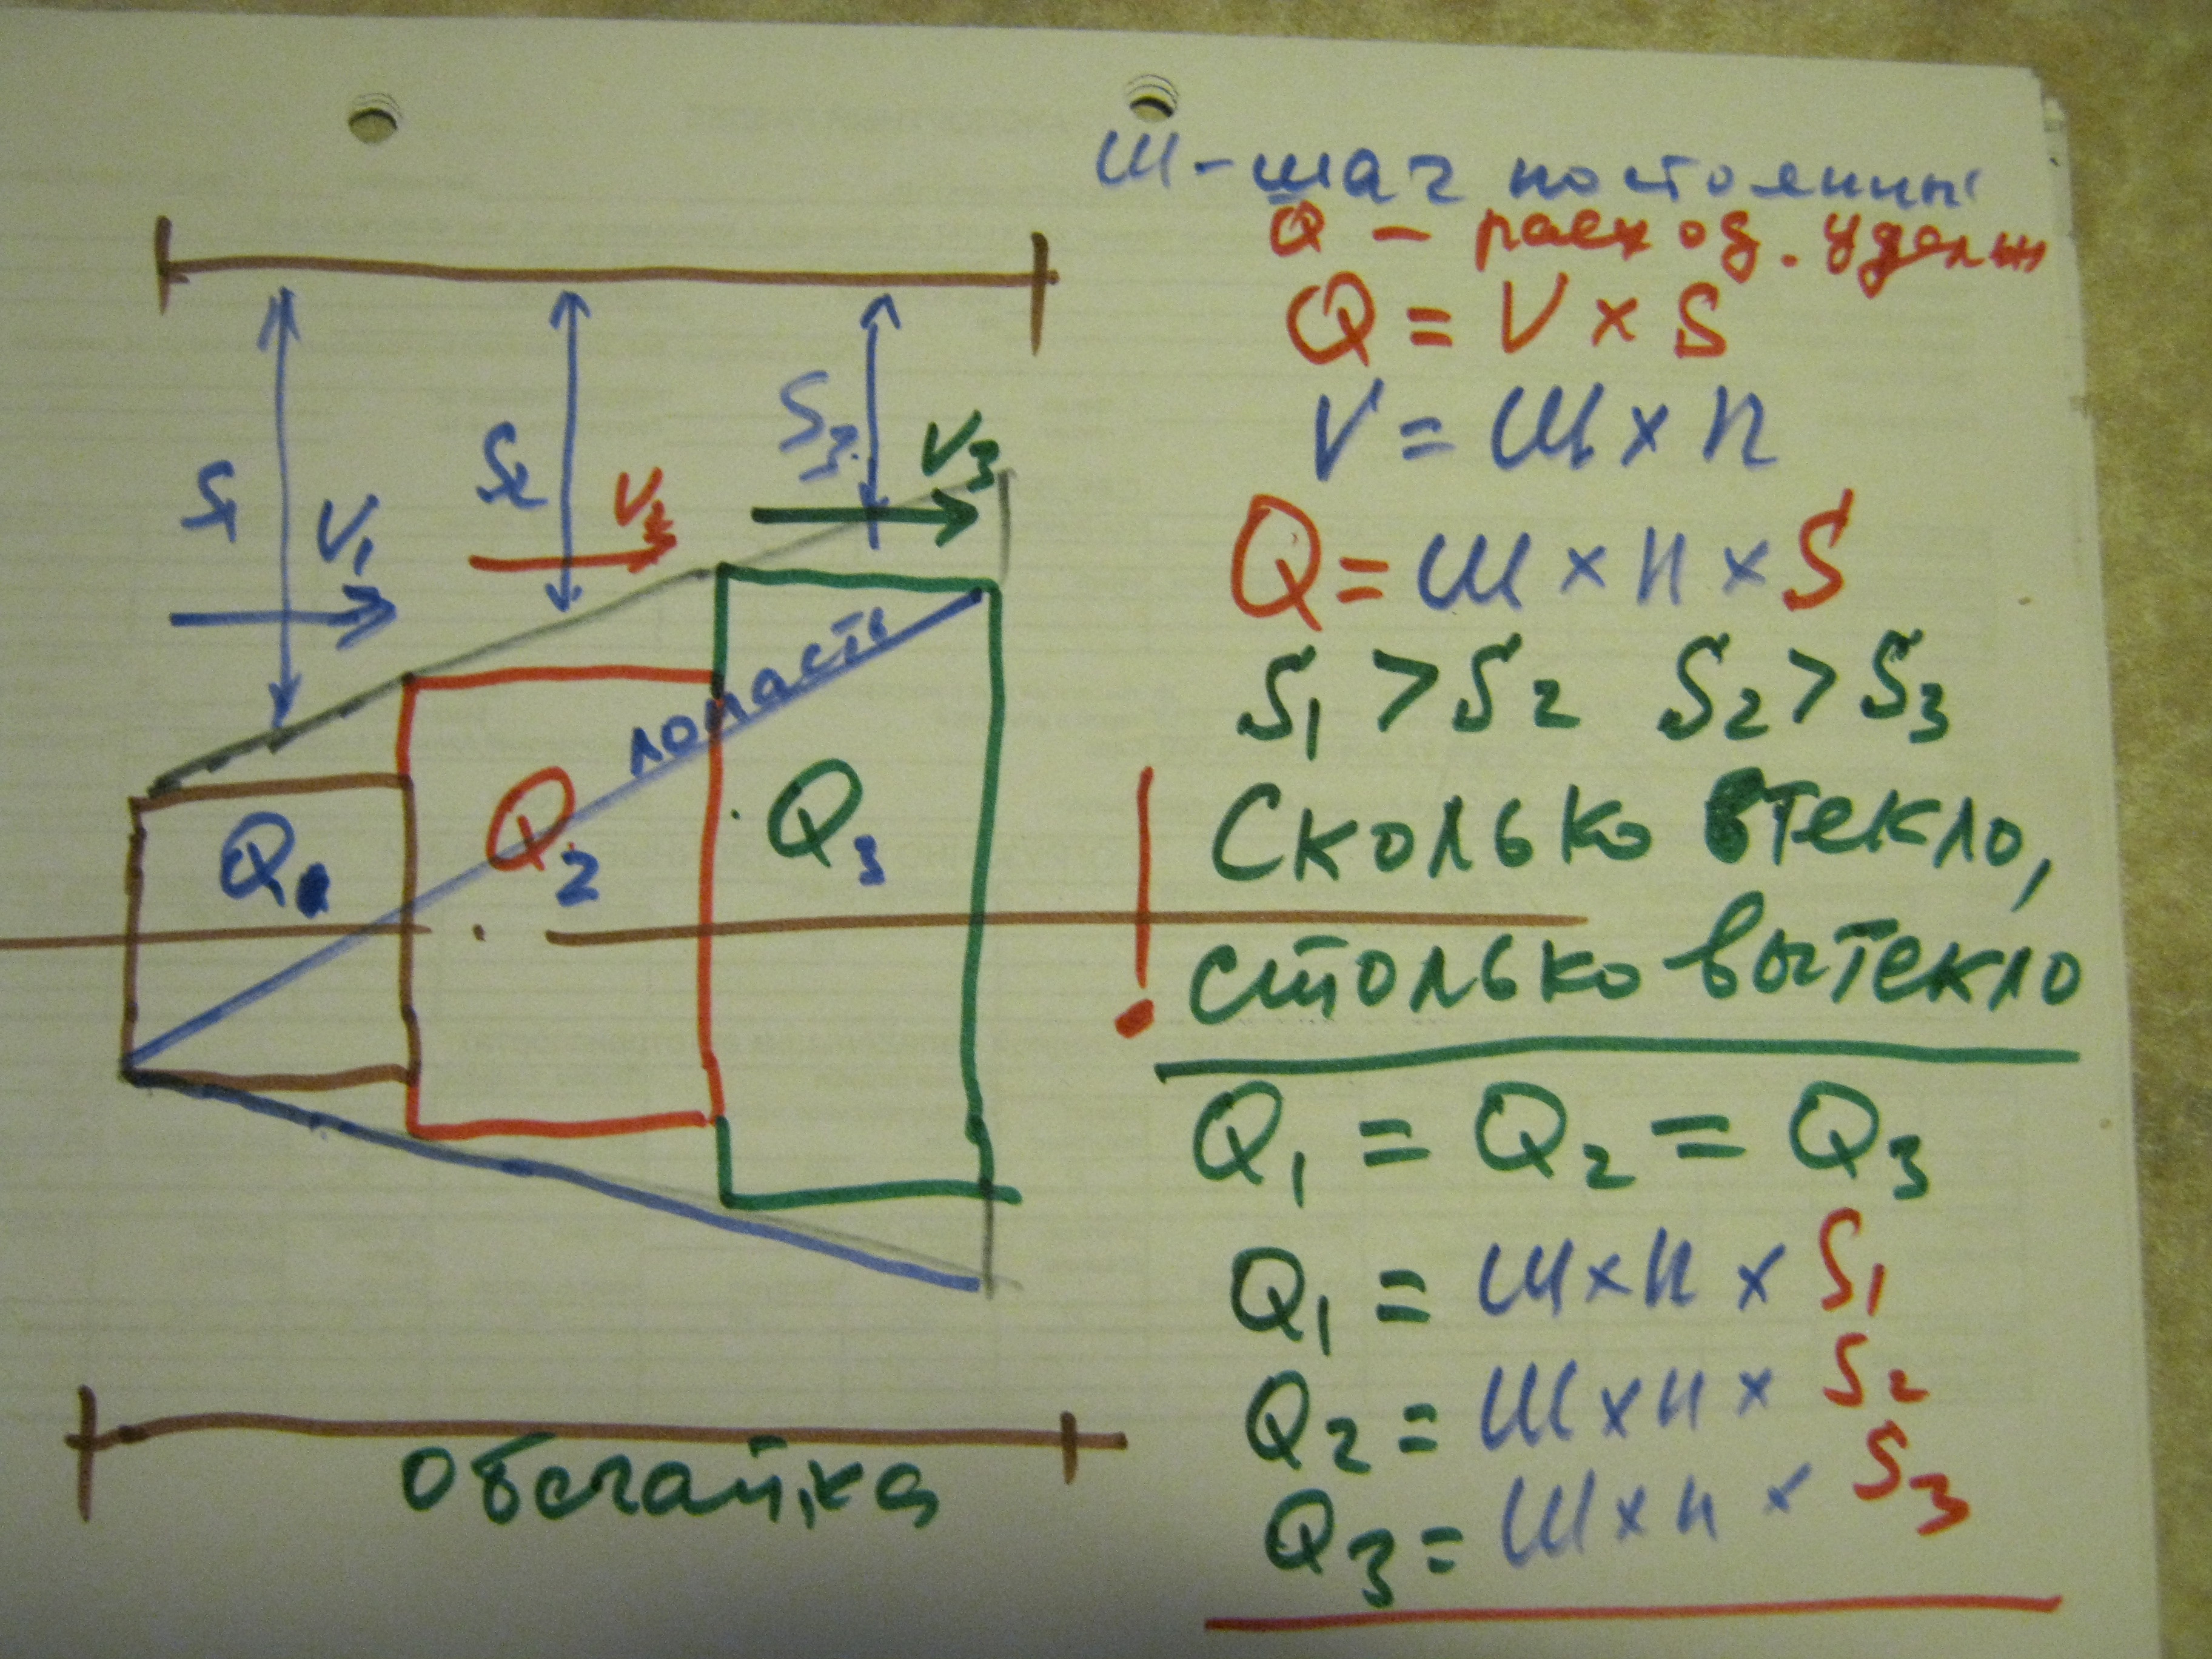 Ш-шаг постоянны
Q - расход. удельн
Q = V × S
V = Ш × n
Q = Ш × n × S
S1 > S2 S2 > S3
Сколько втекло,
столько вытекло
Q1 = Q2 = Q3
Q1 = Ш × n × S1
Q2 = Ш × n × S2
Q3 = Ш × n × S3
S1
V1
S2
V2
S3
V3
лопасть
Q1
Q2
Q3
обечайка